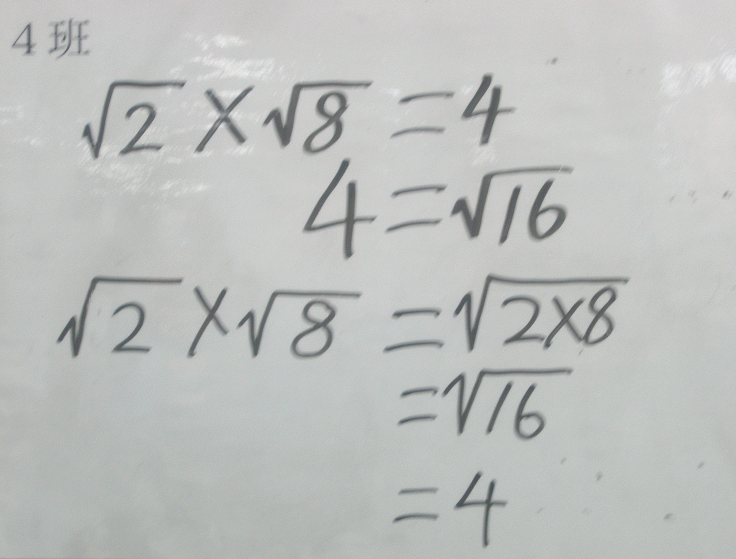 4班
√2 × √8 = 4
4 = √16
√2 × √8 = √2×8
= √16
= 4